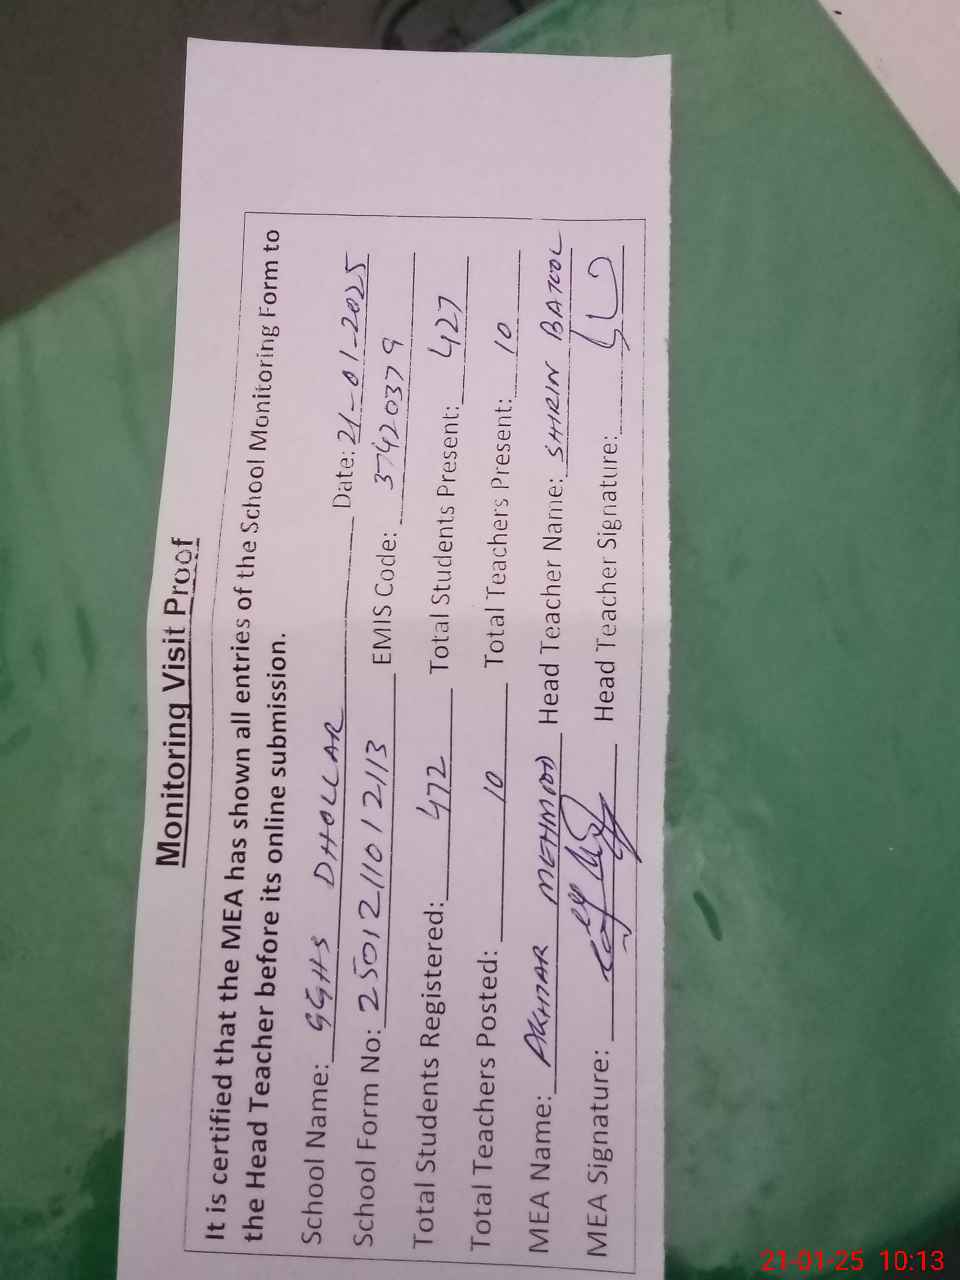 Monitoring Visit Proof
It is certified that the MEA has shown all entries of the School Monitoring Form to
the Head Teacher before its online submission.
School Name: GGHS DHOLLAR Date: 21-01-2025
School Form No: 25012111012113 EMIS Code: 37420379
Total Students Registered: 472 Total Students Present: 427
Total Teachers Posted: 10 Total Teachers Present: 10
MEA Name: AKHTAR MEHMOOD Head Teacher Name: SHIRIN BATOOL
MEA Signature: Head Teacher Signature:
21-01-25 10:13